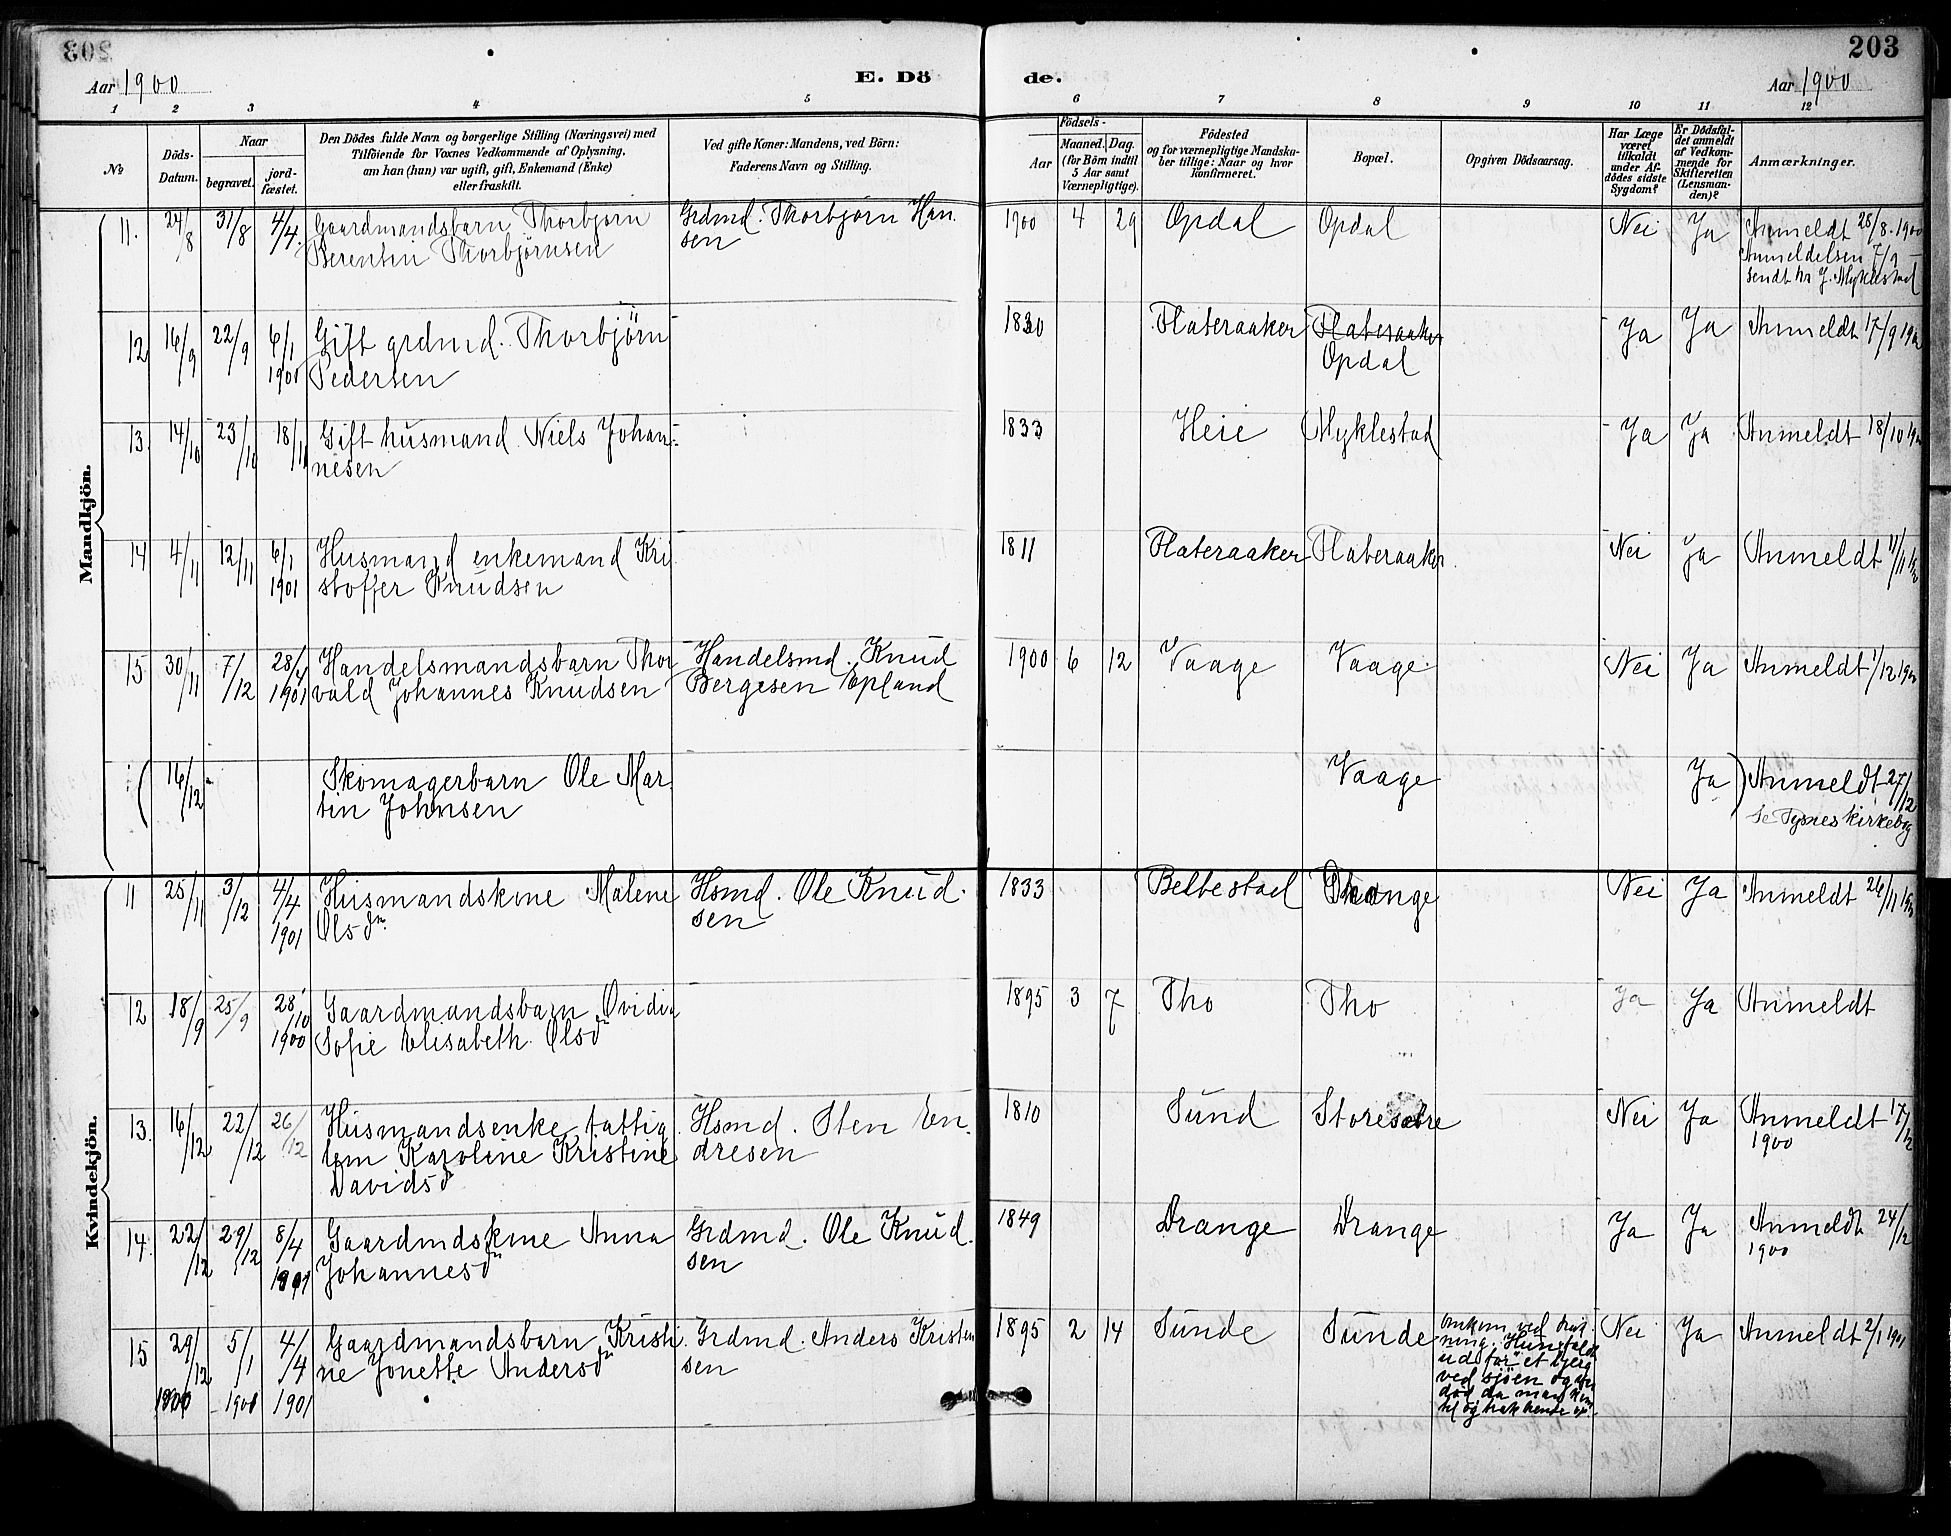 203
Aar 1900
E. Dö
de.
Aar 1900
203
1 2 3 4 5 6 7 8 9 10 11 12
No
Döds-
Datum.
Naar
begravet.
jord-
fæstet.
Den Dödes fulde Navn og borgerlige Stilling (Næringsvei) med
Tilföiende for Voxnes Vedkommende af Oplysning,
om han (hun) var ugift, gift, Enkemand (Enke)
eller fraskilt.
Ved gifte Koner: Mandens, ved Börn:
Faderens Navn og Stilling.
Födsels-
Aar
Maaned. Dag.
(for Börn indtil
5 Aar samt
Værnepligtige).
Födested
og for værnepligtige Mandska-
ber tillige: Naar og hvor
konfirmeret.
Bopæl.
Opgiven Dödsaarsag.
Har Læge
været
tilkaldt
under Af-
dödes sidste
Sygdom?
Er Dödsfal-
det anmeldt
af Vedkom-
mende for
Skifteretten
(Lensman-
den)?
Anmærkninger.
Mandkjön.
11. 24/8 31/8 4/4. Gaardmandsbarn Thorbjørn Grdmd. Thorbjörn Han- 1900 4 29 Opdal Opdal Nei Ja Anmeldt 28/8. 1900
Berentin Thorbjörnsen sen Anmeldelsen 7/9
sendt hr J. Myklestad
12 16/9 22/9 6/1 Gift grdmd. Thorbjörn 1830 Flateraaker Flateraaker Ja Ja Anmeldt 17/9 1900
1901 Pedersen Opdal
13. 14/10 23/10 18/11 Gift husmand Niels Johan- 1833 Heie Myklestad Ja Ja Anmeldt 18/10 1900
nesen
14 4/11 12/11 6/1 Husmand enkemand Kri 1811 Flateraaker Flateraaker Nei Ja Anmeldt 11/11 1900
1901 stoffer Knudsen
15. 30/11 7/12 28/4 Handelsmandsbarn Thor Handelsmd. Knud 1900 6 12 Vaage Vaage. Nei Ja Anmeldt 1/12 1900
1901 vald Johannes Knudsen Bergesen Epland
( 16/12 Skomagerbarn Ole Mar- Vaage Ja ) Anmeldt 27/12
tin Johnsen Se Tysnes kirkebog
Kvindekjön.
11 25/11 3/12 4/4 Husmandskone Malene Hsmd. Ole Knud- 1833 Beltestad Drange Nei Ja Anmeldt 26/11 1900
1901 Olsdtr. sen
12 18/9 25/9 28/10 Gaardmandsbarn Ovidia 1895 3 7 Tho Tho Ja Ja Anmeldt
1900 Sofie Elisabeth Olsdtr
13. 16/12 22/12 26/12 Husmandsenke fattig Hsmd. Sten En- 1810 Sund Storesætre Nei Ja Anmeldt 17/12
lem Karoline Kristine dresen 1900
Davidsdtr
14. 22/12 29/12 8/4 Gaardmdskone Anna Grdmd. Ole Knud- 1849 Drange Drange Ja Ja Anmeldt 24/12
1901 Johannesdtr sen 1900
15 29/12 5/1 4/4 Gaardmandsbarn Kristi- Grdmd. Anders Kristen 1895 2 14 Sunde Sunde Omkom ved Nei Ja Anmeldt 2/1 1901
1900 1901 1901 ne Jonette Andersdtr sen
ning. Hun faldt
ud for et bjerg
ved sjöen og var
död da man kom
til og trak hende op.